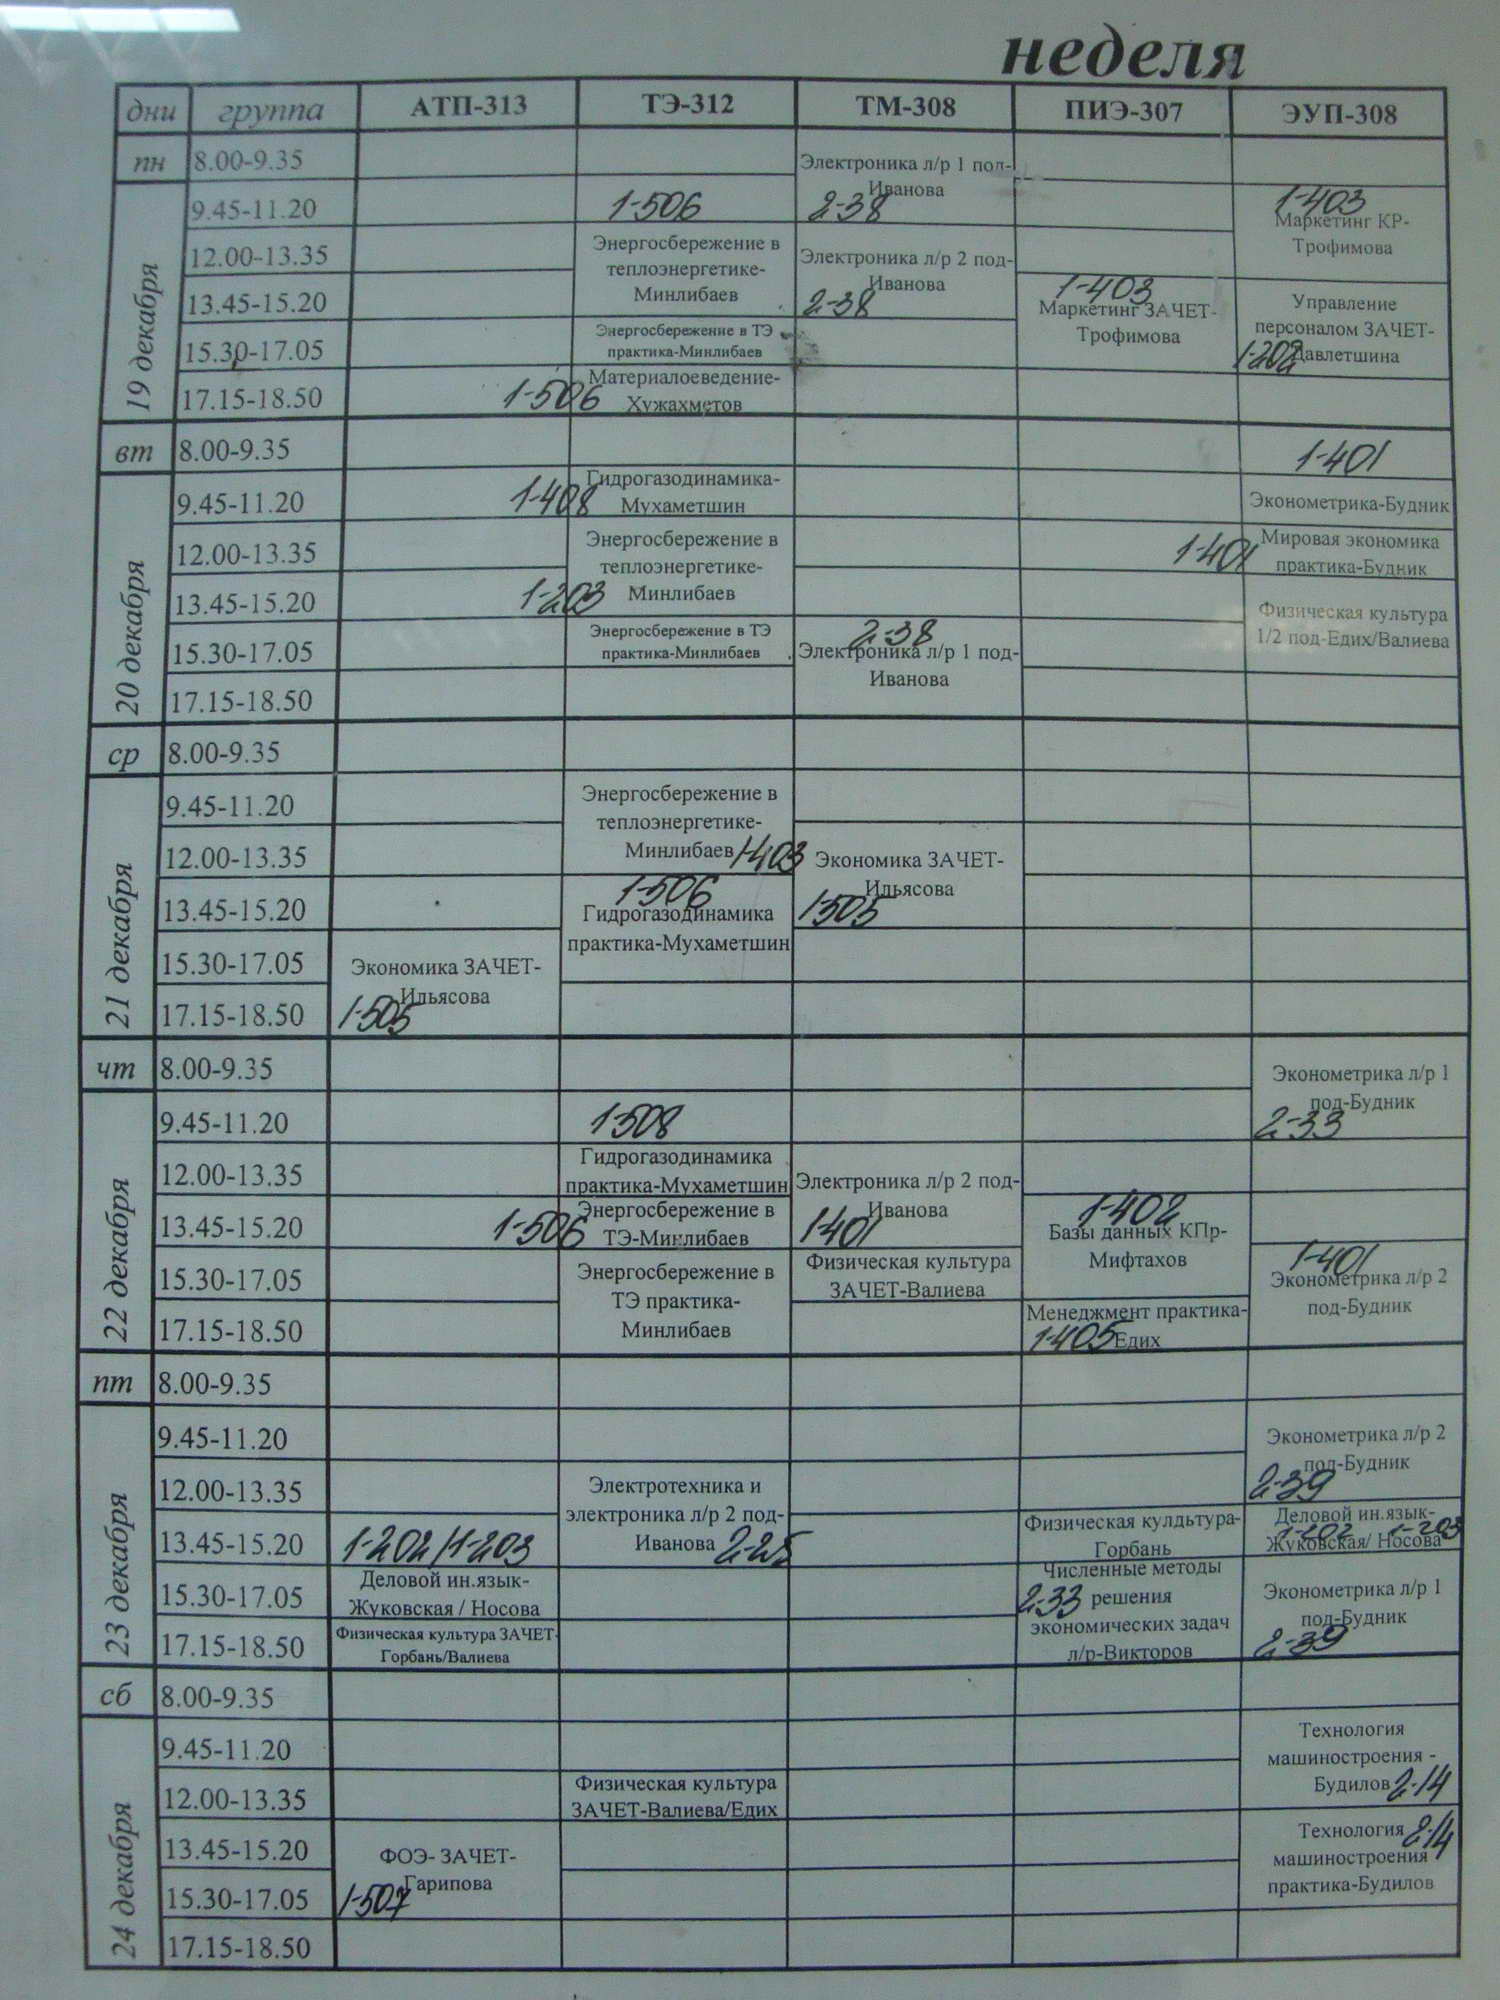 неделя
дни группа АТП-313 ТЭ-312 ТМ-308 ПИЭ-307 ЭУП-308
пн 8.00-9.35
Электроника л/р 1 под-
Иванова
9.45-11.20
1-506
2-38
1-403
Маркетинг КР-
Трофимова
19 декабря
12.00-13.35
Энергосбережение в
теплоэнергетике-
Минлибаев
Электроника л/р 2 под-
Иванова
2-38
13.45-15.20
1-403
Маркетинг ЗАЧЕТ-
Трофимова
Управление
персоналом ЗАЧЕТ-
Давлетшина
1-202
15.30-17.05
Энергосбережение в ТЭ
практика-Минлибаев
17.15-18.50
1-506
Материалоеведение-
Хужахметов
вт 8.00-9.35
1-401
20 декабря
9.45-11.20
1-408
Гидрогазодинамика-
Мухаметшин
Эконометрика-Будник
12.00-13.35
Энергосбережение в
теплоэнергетике-
Минлибаев
1-401
Мировая экономика
практика-Будник
13.45-15.20
1-203
Физическая культура
1/2 под-Едих/Валиева
15.30-17.05
Энергосбережение в ТЭ
практика-Минлибаев
2-38
Электроника л/р 1 под-
Иванова
17.15-18.50
ср 8.00-9.35
21 декабря
9.45-11.20
Энергосбережение в
теплоэнергетике-
Минлибаев 1-403
12.00-13.35
Экономика ЗАЧЕТ-
Ильясова
1-505
13.45-15.20
1-506
Гидрогазодинамика
практика-Мухаметшин
15.30-17.05
Экономика ЗАЧЕТ-
Ильясова
1-505
17.15-18.50
чт 8.00-9.35
Эконометрика л/р 1
под-Будник
2-33
22 декабря
9.45-11.20
1-508
12.00-13.35
Гидрогазодинамика
практика-Мухаметшин
Электроника л/р 2 под-
Иванова
1-401
13.45-15.20
1-506
Энергосбережение в
ТЭ-Минлибаев
1-402
Базы данных КПр-
Мифтахов
15.30-17.05
Энергосбережение в
ТЭ практика-
Минлибаев
Физическая культура
ЗАЧЕТ-Валиева
1-401
Эконометрика л/р 2
под-Будник
17.15-18.50
Менеджмент практика-
1-405 Едих
пт 8.00-9.35
23 декабря
9.45-11.20
Эконометрика л/р 2
под-Будник
2-39
12.00-13.35
Электротехника и
электроника л/р 2 под-
Иванова 2-25
13.45-15.20
1-202/1-203
Физическая кулдьтура-
Горбань
Деловой ин.язык-
Жуковская/ Носова
1-202 1-203
15.30-17.05
Деловой ин.язык-
Жуковская / Носова
Численные методы
2-33 решения
экономических задач
л/р-Викторов
Эконометрика л/р 1
под-Будник
2-39
17.15-18.50
Физическая культура ЗАЧЕТ-
Горбань/Валиева
сб 8.00-9.35
24 декабря
9.45-11.20
Технология
машиностроения -
Будилов 2-14
12.00-13.35
Физическая культура
ЗАЧЕТ-Валиева/Едих
13.45-15.20
ФОЭ- ЗАЧЕТ-
Гарипова
1-507
Технология 2-14
машиностроения
практика-Будилов
15.30-17.05
17.15-18.50